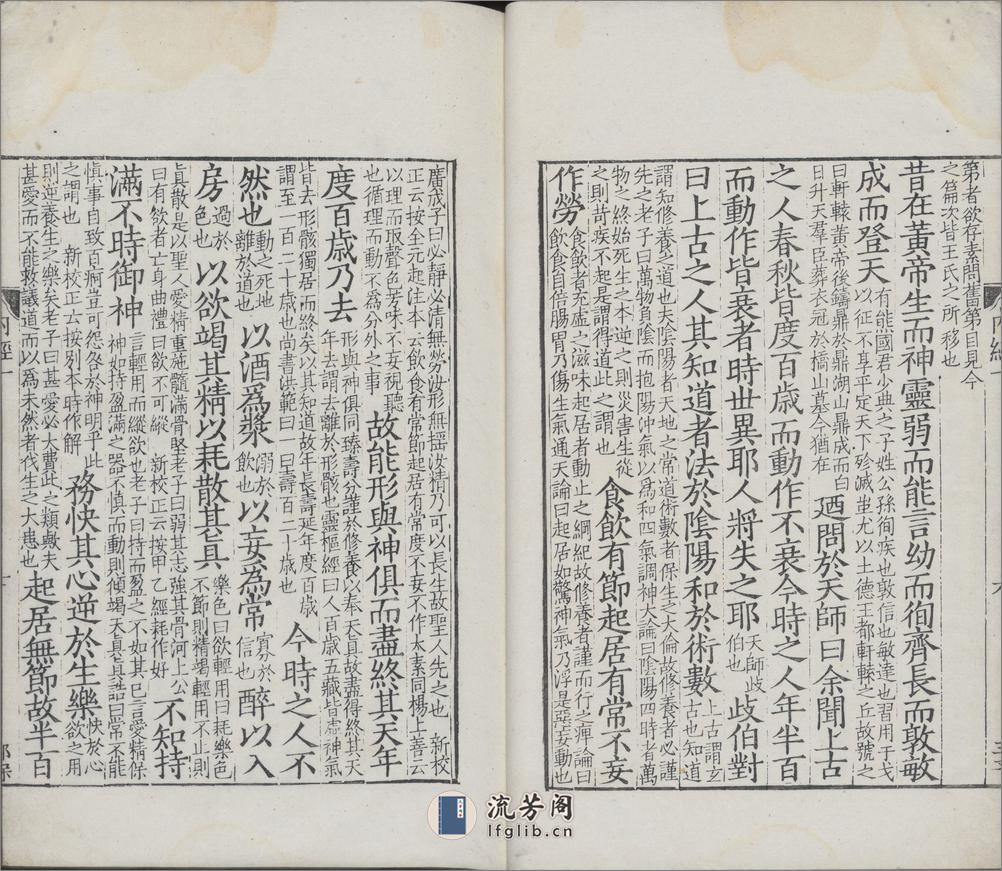 第者欲存素問舊第目見今
之篇次皆王氏之所移也
昔在黃帝生而神靈弱而能言幼而徇齊長而敦敏
成而登天
有熊國君少典之子姓公孫徇疾也敦信也敏達也習用干戈
以征不享平定天下殄滅蚩尤以土德王都軒轅之丘故號之
曰軒轅黃帝後鑄鼎於鼎湖山鼎成而白
日升天羣臣葬衣冠於橋山墓今猶在
迺問於天師曰余聞上古
之人春秋皆度百歲而動作不衰今時之人年半百
而動作皆衰者時世異耶人將失之耶
天師歧
伯也
歧伯對
曰上古之人其知道者法於陰陽和於術數
上古謂玄
古也知道
謂知修養之道也夫陰陽者天地之常道術數者保生之大倫故修養者必謹
先之老子曰萬物負陰而抱陽沖氣以為和四氣調神大論曰陰陽四時者萬
物之終始死生之本逆之則災害生從
之則苛疾不起是謂得道此之謂也
食飲有節起居有常不妄
作勞
食飲者充虛之滋味起居者動止之綱紀故修養者謹而行之痺論曰
飲食自倍腸胃乃傷生氣通天論曰起居如驚神氣乃浮是惡妄動也
廣成子曰必靜必清無勞汝形無搖汝精乃可以長生故聖人先之也 新校
正云按全元起注本云飲食有常節起居有常度不妄不作太素同楊上善云
以理而取聲色芳味不妄視聽
也循理而動不為分外之事
故能形與神俱而盡終其天年
度百歲乃去
形與神俱同臻壽分謹於修養以奉天真故盡得終其天
年去謂去離於形骸也靈樞經曰人百歲五藏皆虛神氣
皆去形骸獨居而終矣以其知道故年長壽延年度百歲
謂至一百二十歲也尚書洪範曰一曰壽百二十歲也
今時之人不
然也
動之死地
離於道也
以酒為漿
溺於
飲也
以妄為常
寡於
信也
醉以入
房
過於
色也
以欲竭其精以耗散其真
樂色曰欲輕用曰耗樂色
不節則精竭輕用不止則
真散是以聖人愛精重施髓滿骨堅老子曰弱其志強其骨河上公
曰有欲者亡身曲禮曰欲不可縱 新校正云按甲乙經耗作好
不知持
滿不時御神
言輕用而縱欲也老子曰持而盈之不如其已言愛精保
神如持盈滿之器不慎而動則傾竭天真真誥曰常不能
慎事自致百痾豈可怨咎於神明乎此
之謂也 新校正云按別本時作解
務快其心逆於生樂
快於心
欲之用
則逆養生之樂矣老子曰甚愛必大費此之類歟夫
甚愛而不能救議道而以為未然者伐生之大患也
起居無節故半百
內經一
流芳阁
lfglib.cn